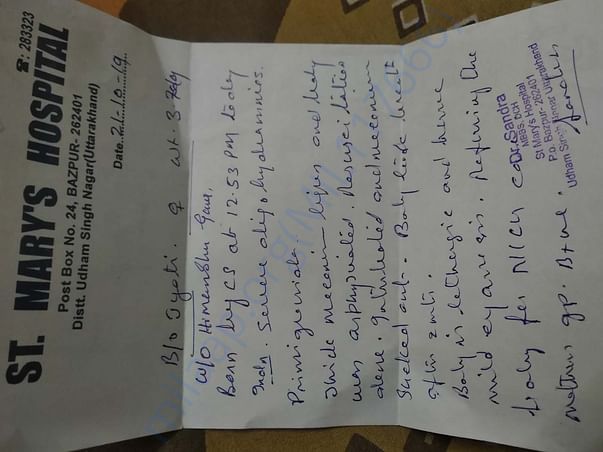 ST. MARY'S HOSPITAL
☎: 283323
Post Box No. 24, BAZPUR- 262401
Distt. Udham Singh Nagar(Uttarakhand)
Date. 21.10.19
B/o Jyoti. ♀ wt. 3
W/o Himanshu
Born by CS at 12.53 PM today
Indn. Severe oligohydramnios.
Primigravida.
Thick meconium liquor and baby
was asphyxiated. Resuscitation
done. Intubated and meconium
sucked out. Baby took breath
after 2 mts.
Baby is lethargic and
mild cyanosis. Refering the
baby for NICU care
mothers gp. B+ve.
Dr. Sandra
MBBS, DCH
St Mary's Hospital
P.o. Bazpur- 262401
Udham Singh Nagar Uttarakhand